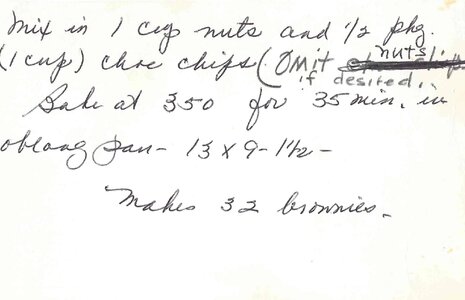 Mix in 1 cup nuts and 1/2 pkg.
(1 cup) choc chips (Omit nuts
if desired.
Bake at 350 for 35 min. in
oblong pan - 13 x 9 - 1 1/2 -
Makes 32 brownies.